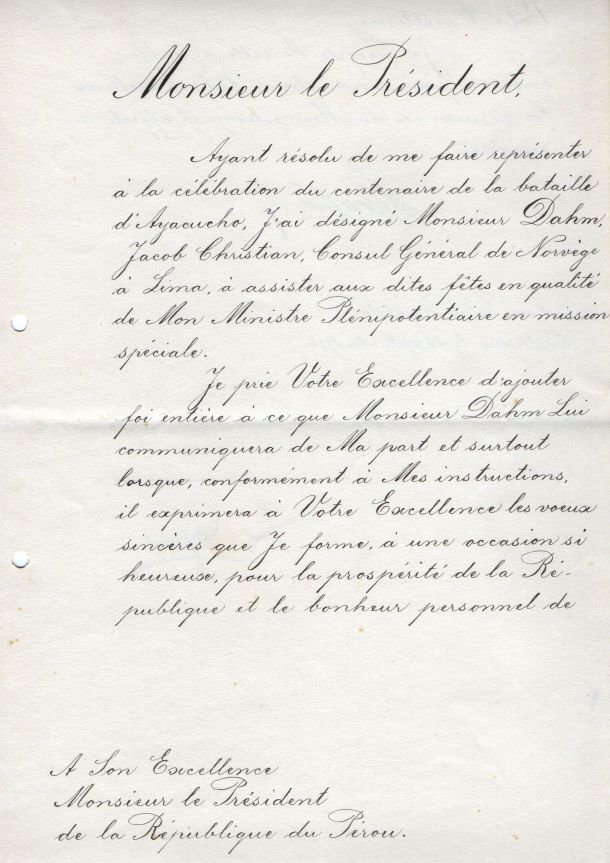 Monsieur le Président.
Ayant résolu de me faire représenter
à la célébration du centenaire de la bataille
d'Ayacucho, J'ai désigné Monsieur Dahm,
Jacob Christian, Consul Général de Norvège
à Lima, à assister aux dites fêtes en qualité
de Mon Ministre Plénipotentiaire en mission
spéciale.
Je prie Votre Excellence d'ajouter
foi entière à ce que Monsieur Dahm Lui
communiquera de Ma part et surtout
lorsque, conformément à Mes instructions,
il exprimera à Votre Excellence les voeux
sincères que Je forme, à une occasion si
heureuse, pour la prospérité de la Ré-
publique et le bonheur personnel de
A Son Excellence
Monsieur le Président
de la République du Pérou.